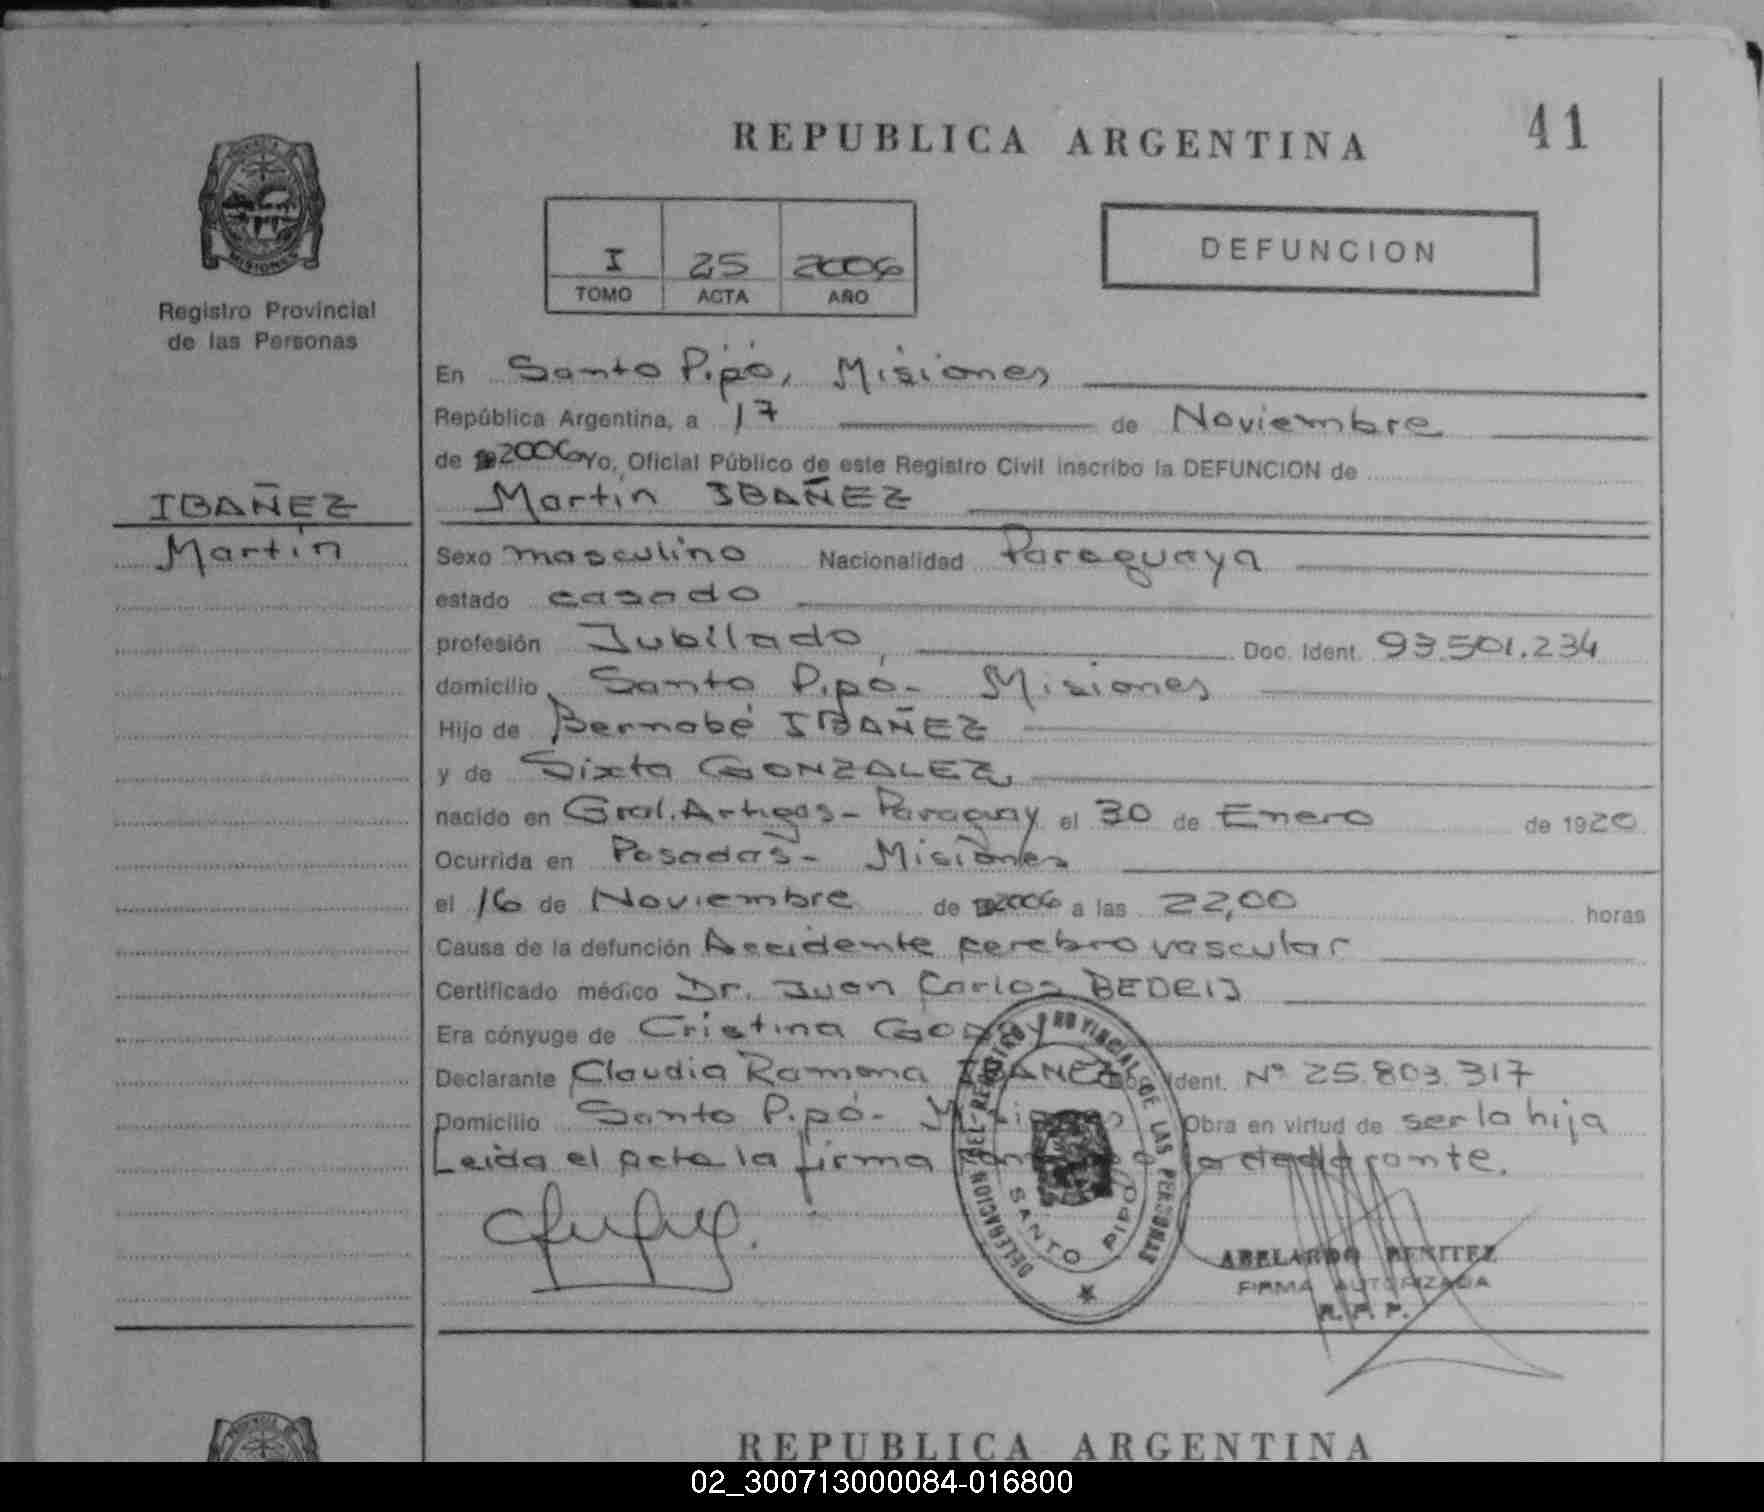 REPUBLICA ARGENTINA
41
MISIONES
Registro Provincial
de las Personas
I 25 2006
TOMO ACTA AÑO
DEFUNCION
En Santo Pipó, Misiones
República Argentina, a 17 de Noviembre
de 2006 Yo, Oficial Público de este Registro Civil inscribo la DEFUNCION de
Martín IBAÑEZ
IBAÑEZ
Martín
Sexo masculino Nacionalidad Paraguaya
estado casado
profesión Jubilado, Doc. Ident. 93.501.234
domicilio Santo Pipó- Misiones
Hijo de Bernabé IBAÑEZ
y de Sixta GONZALEZ,
nacido en Gral. Artigas- Paraguay el 30 de Enero de 1920
Ocurrida en Posadas- Misiones
el 16 de Noviembre de 2006 a las 22,00 horas
Causa de la defunción Accidente cerebro vascular
Certificado médico Dr. Juan Carlos
Era cónyuge de Cristina GODOY
Declarante Claudia Ramona IBAÑEZ Doc. Ident. Nº 25.803.317
Domicilio Santo Pipó- Misiones Obra en virtud de ser la hija
Leída el acta la firma la declarante.
DELEGACION DEL REGISTRO PROVINCIAL DE LAS PERSONAS
SANTO PIPO
ABELARDO BENITEZ
FIRMA AUTORIZADA
R. P. P.
REPUBLICA ARGENTINA
02_300713000084-016800